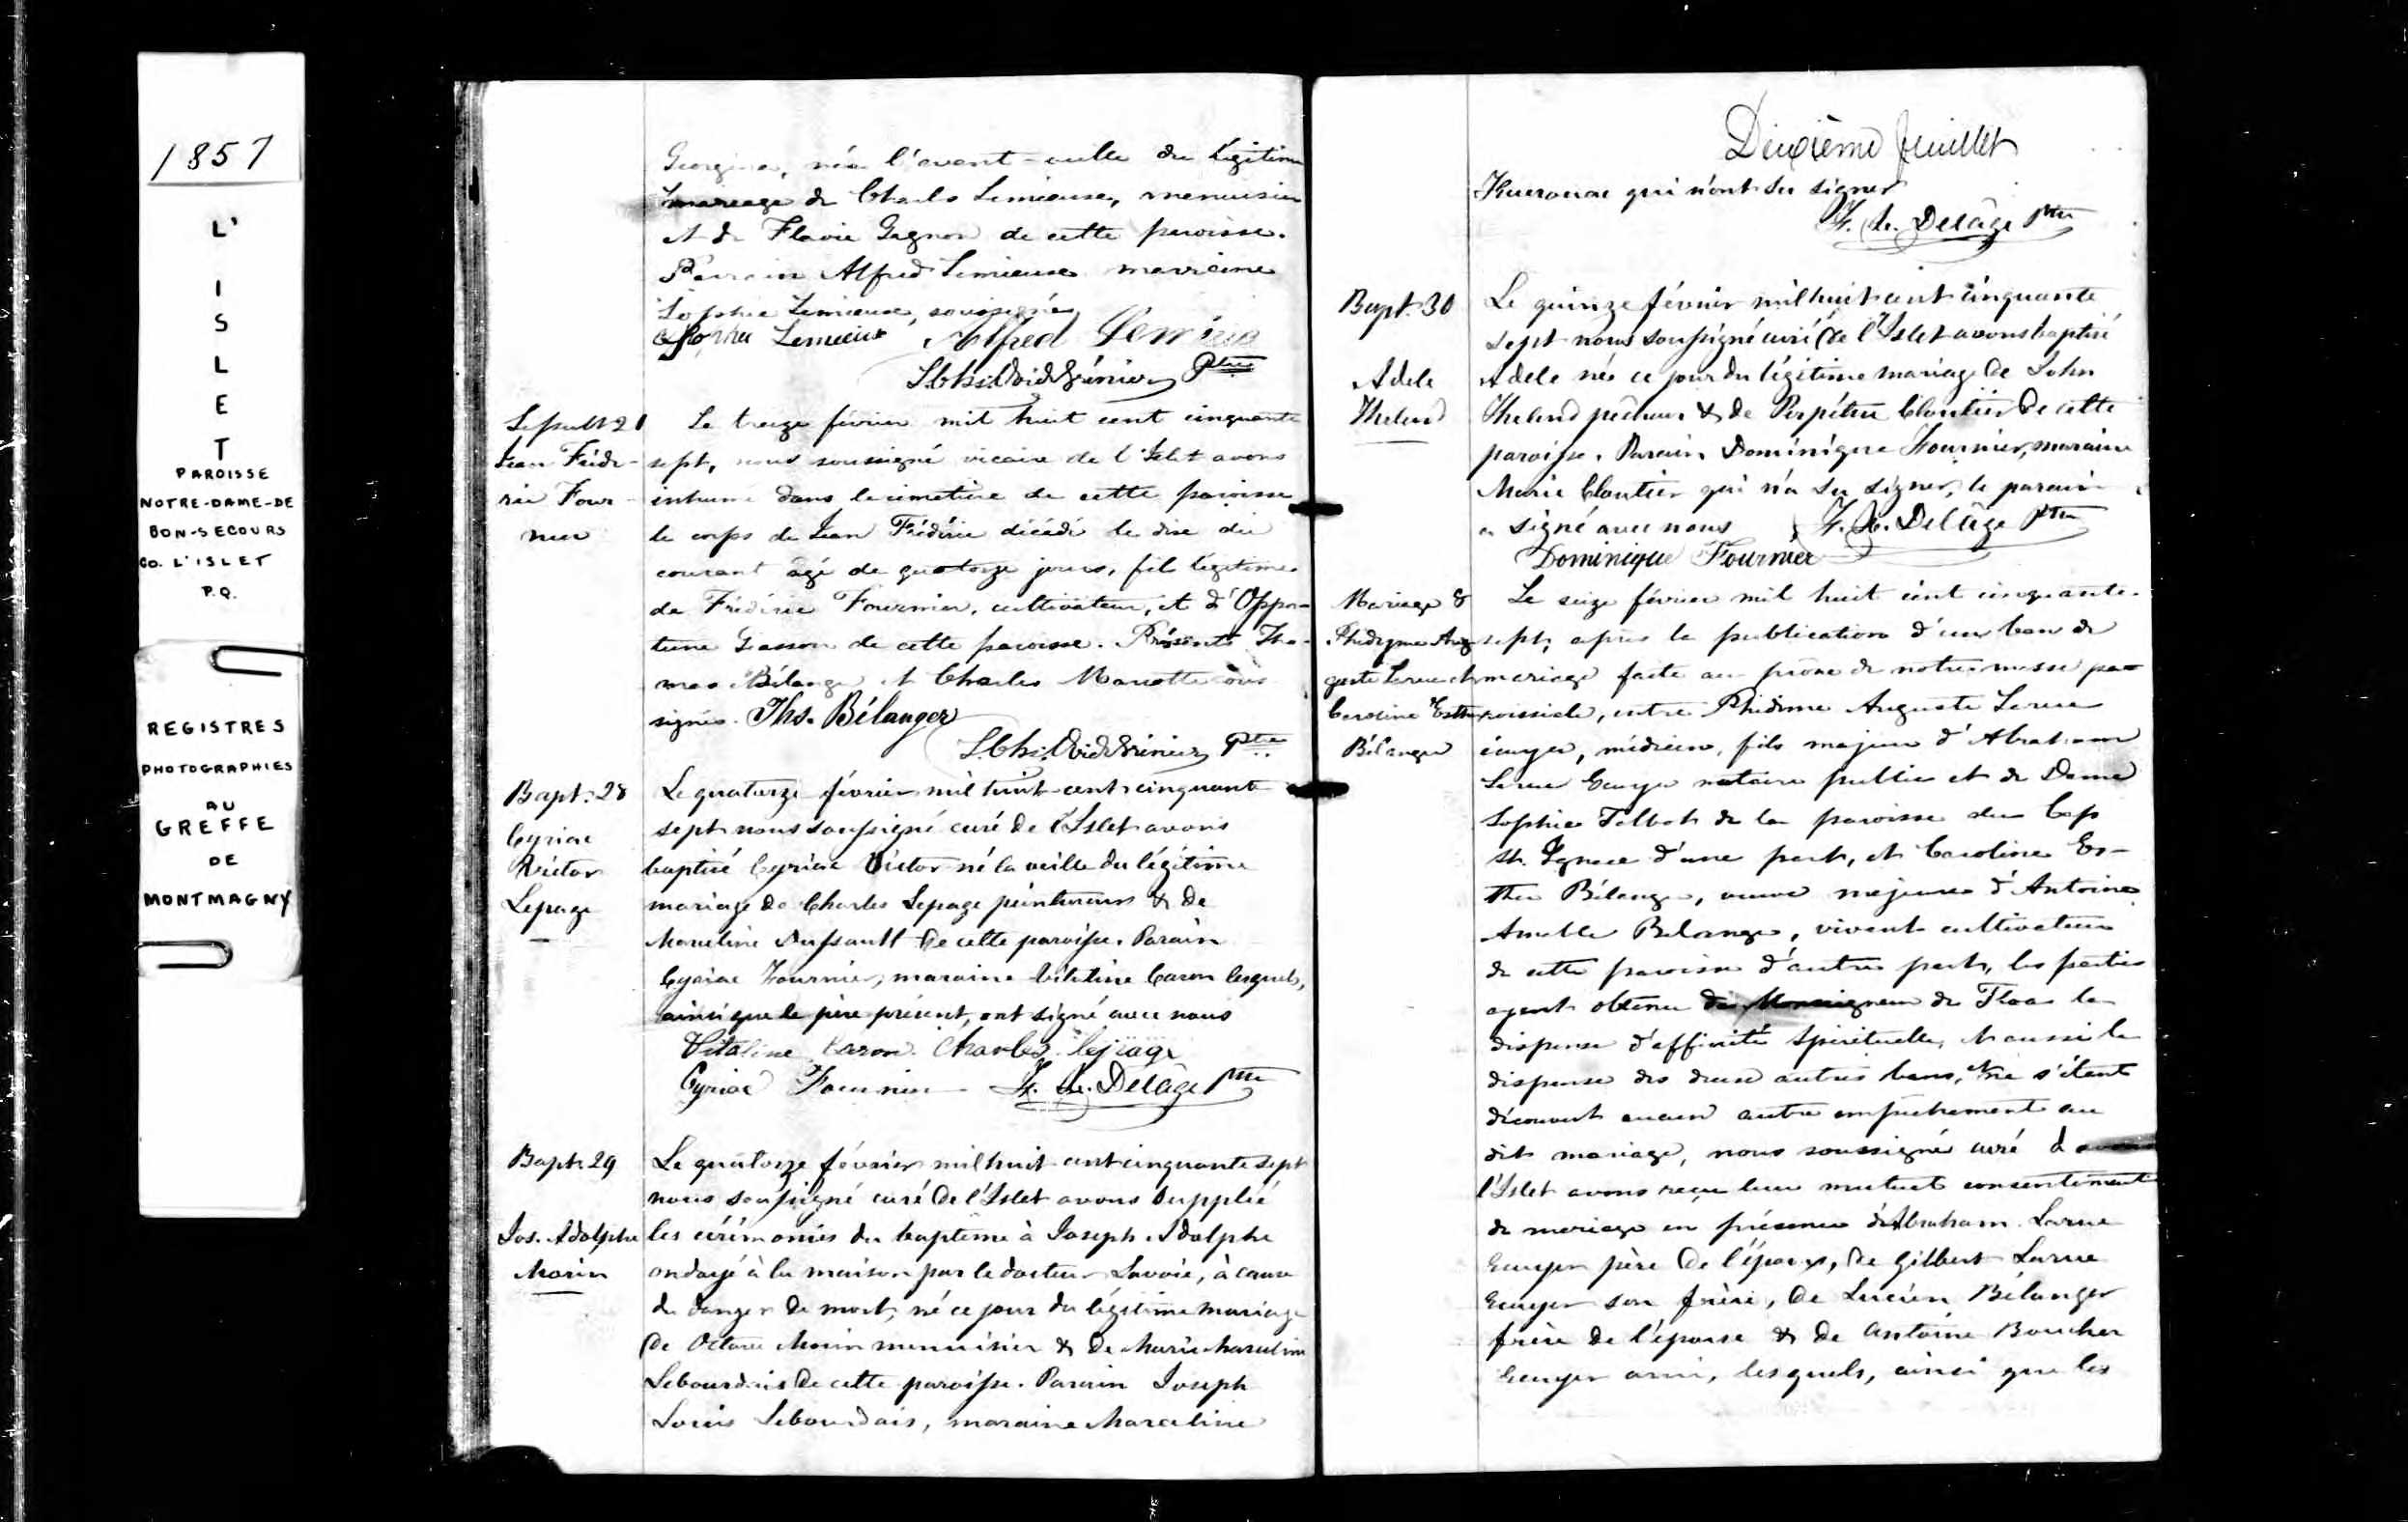 1857
L'
I
S
L
E
T
PAROISSE
NOTRE-DAME-DE
BON-SECOURS
CO. L'ISLET
P.Q.
REGISTRES
PHOTOGRAPHIES
AU
GREFFE
DE
MONTMAGNY
Georgina, née l'avant-veille du légitime
mariage de Charles Lemieux, menuisier
et de Flavie Gagnon de cette paroisse.
Parrain Alfred Lemieux marraine
Sophie Lemieux, soussignés
Sophie Lemieux Alfred Lemieux
Ptre
Sepult 21
Jean Fréde-
ric Four-
nier
Le treize février mil huit cent cinquante
sept, nous soussigné vicaire de l'Islet avons
inhumé dans le cimetière de cette paroisse
le corps de Jean Frédéric décédé le dix du
courant âgé de quatorze jours, fils légitime
de Frédéric Fournier, cultivateur, et d'Oppor-
tune Gasson de cette paroisse. Présents Tho-
mas Bélanger et Charles Marotte sous
signés. Ths. Bélanger
Ptre
Bapt. 28
Cyriac
Victor
Lepage
Le quatorze février mil huit cent cinquante
sept nous soussigné curé de l'Islet avons
baptisé Cyriac Victor né la veille du légitime
mariage de Charles Lepage peintureur & de
Marceline Dussault de cette paroisse. Parain
Cyriac Fournier, maraine Vitaline Caron lesquels,
ainsi que le père présent, ont signé avec nous
Vitaline Caron. Charles lepage
Cyriac Fournier F. X. Delâge Ptre
Bapt. 29
Jos. Adolphe
Morin
Le quatorze février mil huit cent cinquante sept
nous soussigné curé de l'Islet avons supplié
les cérémonies du baptême à Joseph Adolphe
ondoyé à la maison par le docteur Lavoie, à cause
du danger de mort, né ce jour du légitime mariage
de Octave Morin menuisier & de Marie Marceline
Lebourdais de cette paroisse. Parain Joseph
Louis Lebourdais, maraine Marceline
Deuxième feuillet
Kuerouac qui n'ont su signer
F. X. Delâge Ptre
Bapt. 30
Adele
Theland
Le quinze février mil huit cent cinquante
sept nous soussigné curé de l'Islet avons baptisé
Adele née ce jour du légitime mariage de John
Theland pêcheur & de Perpétue Cloutier de cette
paroisse. Parain Dominique Fournier, maraine
Marie Cloutier qui n'a su signer, le parain
a signé avec nous F. X. Delâge Ptre
Dominique Fournier
Mariage 8
Phidyme Aug
guste Larue et
Caroline Esther
Bélanger
Le seize février mil huit cent cinquante-
sept, après la publication d'un ban de
mariage faite au prône de notre messe pa-
roissiale, entre Phidime Auguste Larue
écuyer, médecin, fils majeur d'Abraham
Larue Ecuyer notaire public et de Dame
Sophie Talbot de la paroisse du Cap
St. Ignace d'une part, et Caroline Es-
ther Bélanger, veuve majeure d'Antoine
Amable Belanger, vivant cultivateur
de cette paroisse d'autre part, les parties
ayant obtenu de Monseigneur de Tloa la
dispense d'affinité spirituelle, et aussi la
dispense des deux autres bans, & ne s'étant
découvert aucun autre empêchement au
dit mariage, nous soussigné curé d
l'Islet avons reçu leur mutuel consentement
de mariage en présence d'Abraham Larue
Ecuyer père de l'époux, de Gilbert Larue
Ecuyer son frère, de Lucien Bélanger
frère de l'épouse & de Antoine Boucher
Ecuyer ami, lesquels, ainsi que les